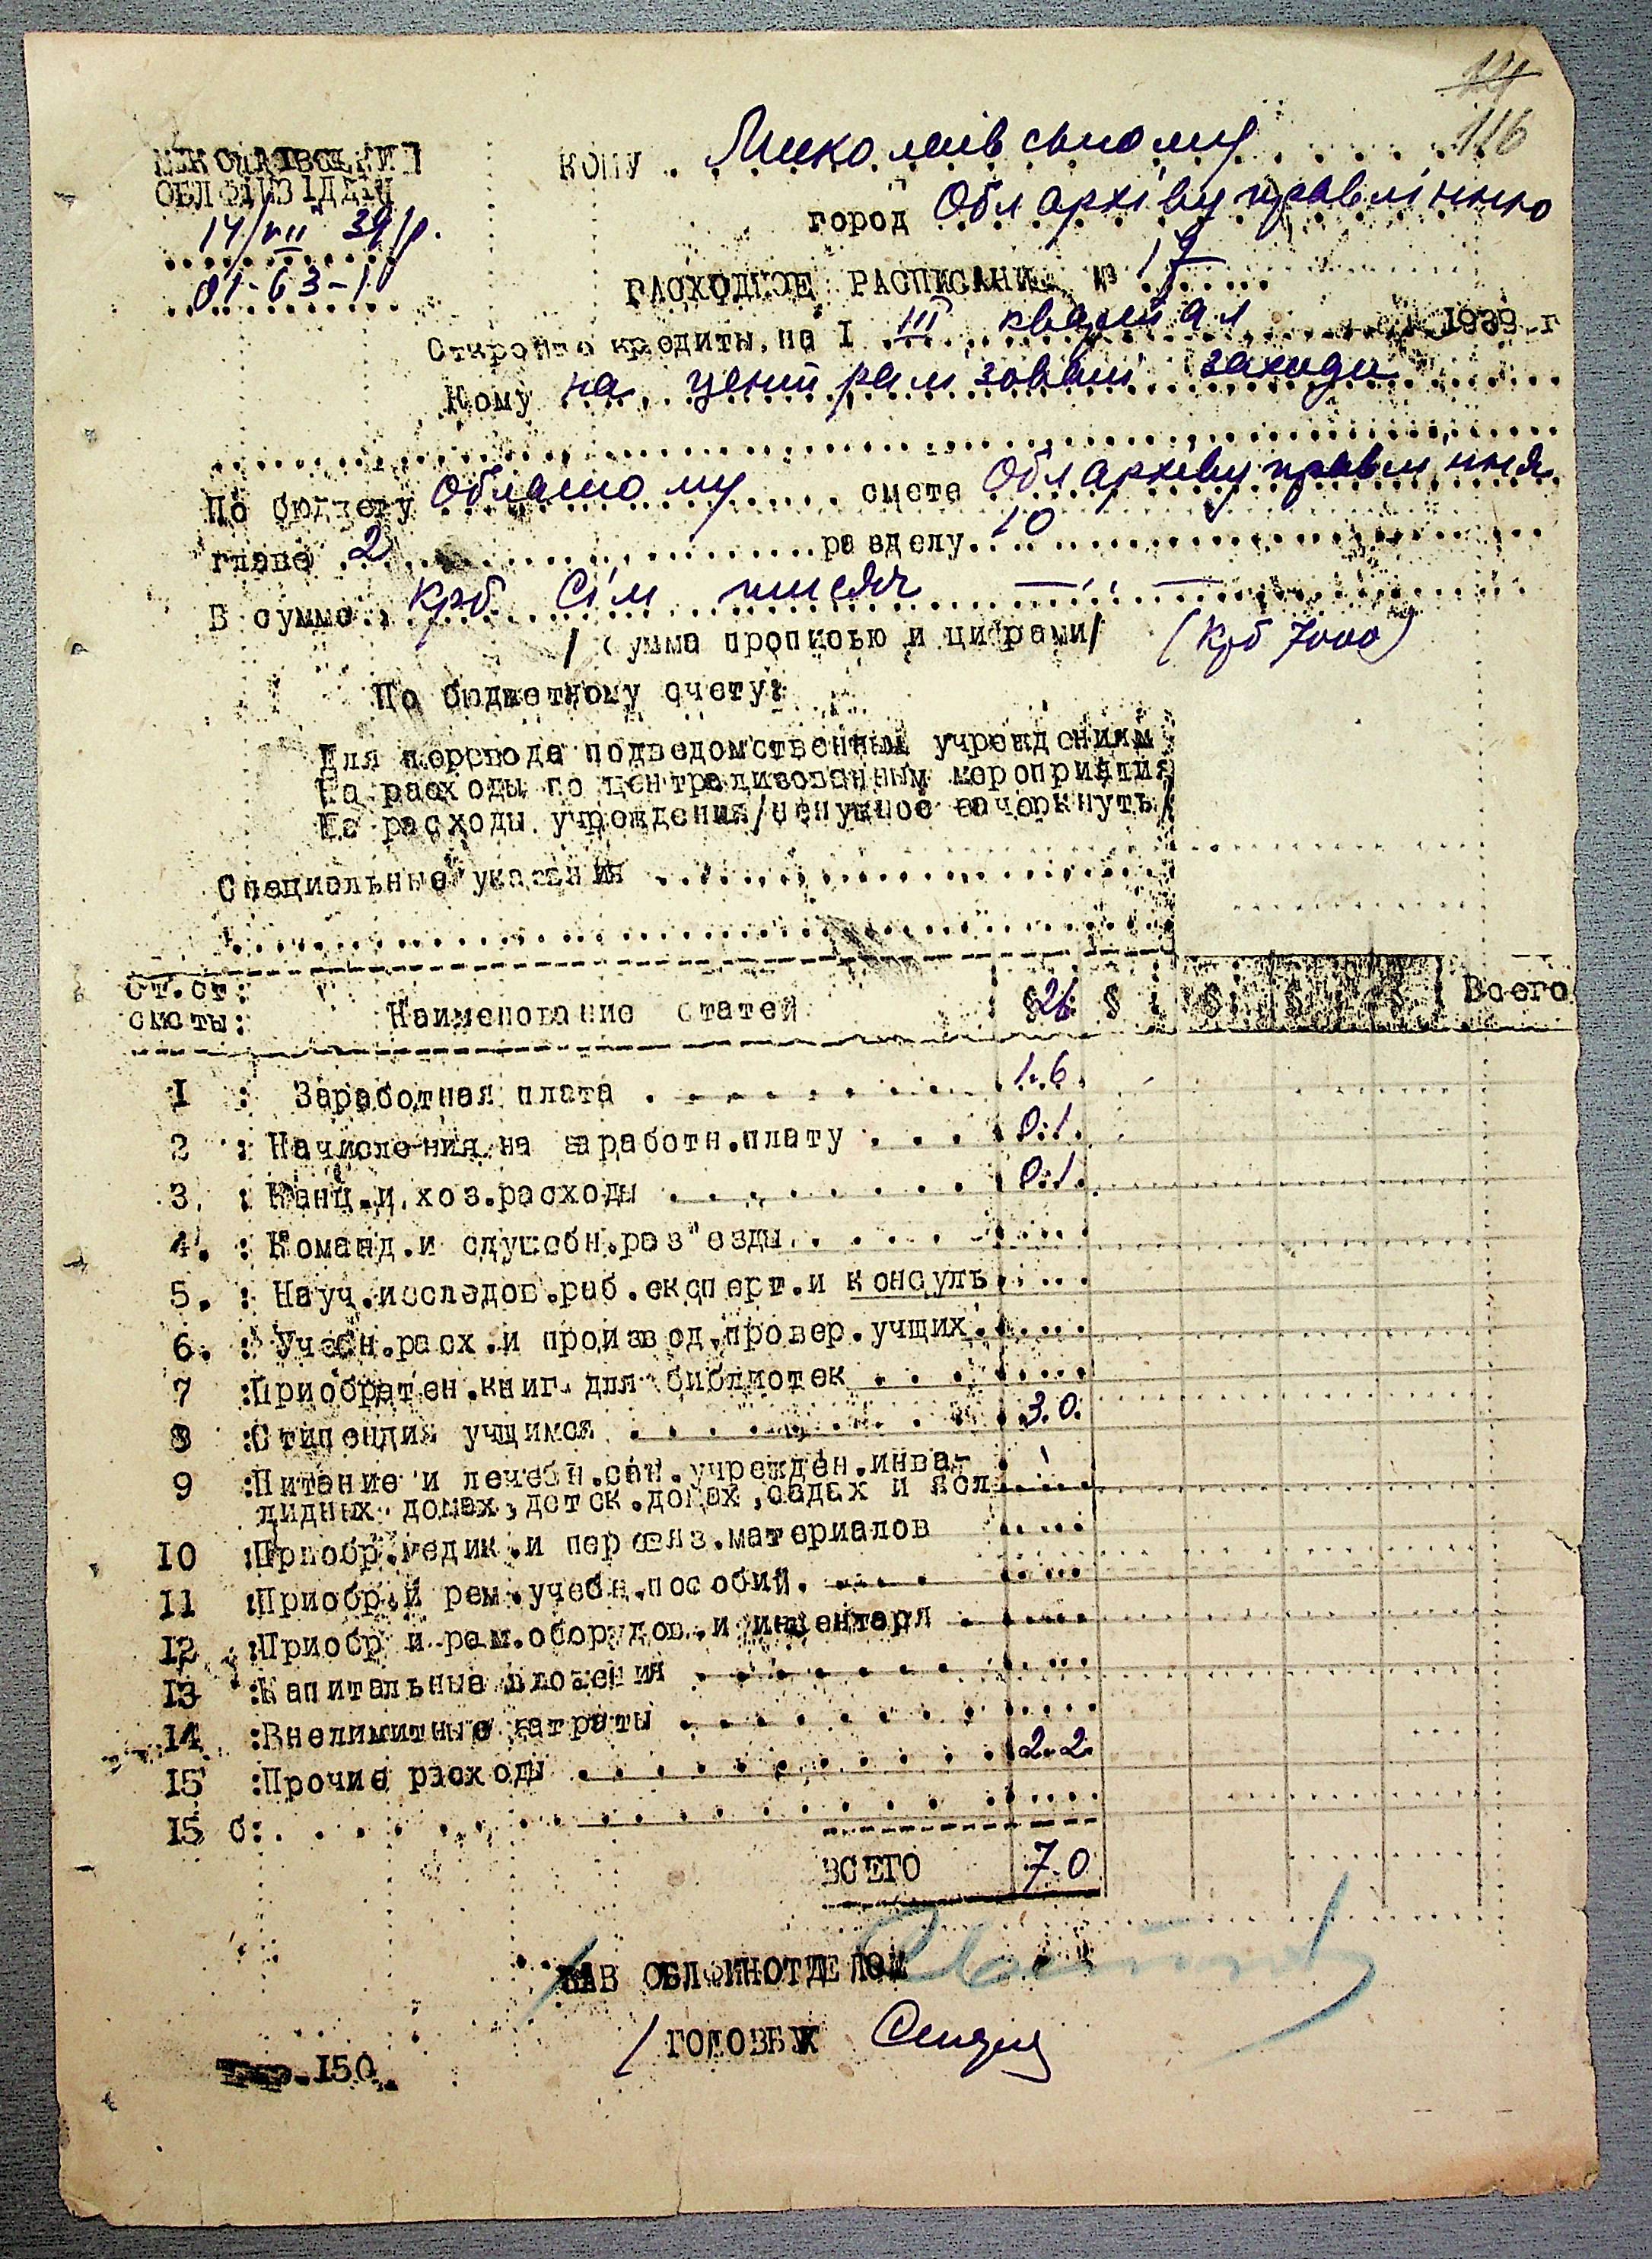 116
МИКОЛАЇВСЬКИЙ
ОБЛФІНВІДДІЛ
14/VII 39 р.
01-63-1
Кому Миколаївському
город Обл архівуправлінню
РАСХОДНОЕ РАСПИСАНИЕ № 17
Открыто кредиты на I III квартал 1939 г
Кому на централізовані заходи
По бюджету Обласному смете Обл архівуправління
главе 2 разделу 10
В сумме Крб. Сім тисяч
/Сумма прописью и цифрами/ (Крб 7000)
По бюджетному счету:
Для перевода подведомственным учреждениям
На расходы по централизованным мероприятия
На расходы учреждения/ненужное зачеркнуть/
Специальные указания
Ст.ст: Наименование статей §26 § § § § Всего
сметы:
1 : Заработная плата 1.6
2 : Начисления на заработн.плату 0.1
3. : Канц.и хоз.расходы 0.1
4. : Команд.и служебн.раз"езды
5. : Науч.исследов.раб.експерт.и консуль
6. : Учебн.расх.и производ.провер.учщих
7 :Приобретен.книг для библиотек
8 :Стипендия учщимся 3.0
9 :Питание и лечебн.сан.учрежден.инва-
лидных домах, детск.домах,садах и ясл
10 :Приобр.медик.и перевяз.материалов
11 :Приобр.и рем.учебн.пособий
12 :Приобр и рем.оборудов.и инвентаря
13 :Капитальные вложения
14 :Внелимитные затраты
15 :Прочие расходы 2.2
15 б:
ВСЕГО 7.0
ЗАВ ОБЛФИНОТДЕЛОМ
/ ГОЛОВБУХ
тир.150